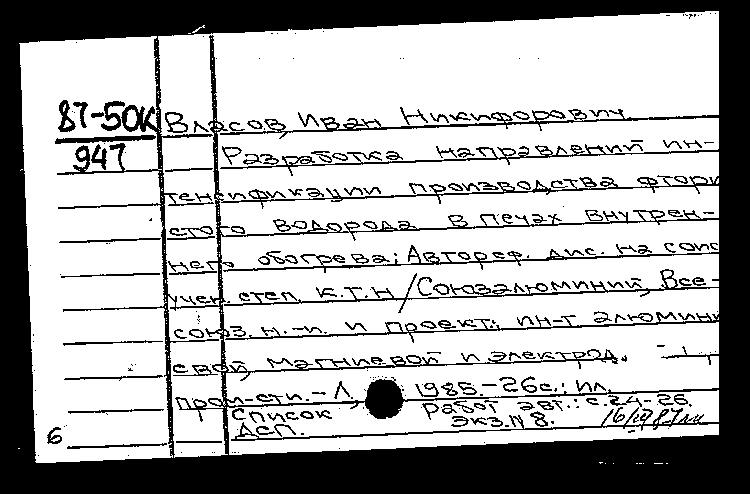 87-50К
947
Власов, Иван Никифорович.
Разработка направлений ин-
тенсификации производства фтори
стого водорода в печах внутрен-
него обогрева: Автореф. дис. на соис
учен. степ. к.т.н/Союзалюминий, Все-
союз. н.-и. и проект. ин-т алюмини
евой, магниевой и электрод.
пром-сти. – Л, 1985-26с.: ил.
Список работ авт.: с.24-26.
ДСП. Экз.N 8.
6